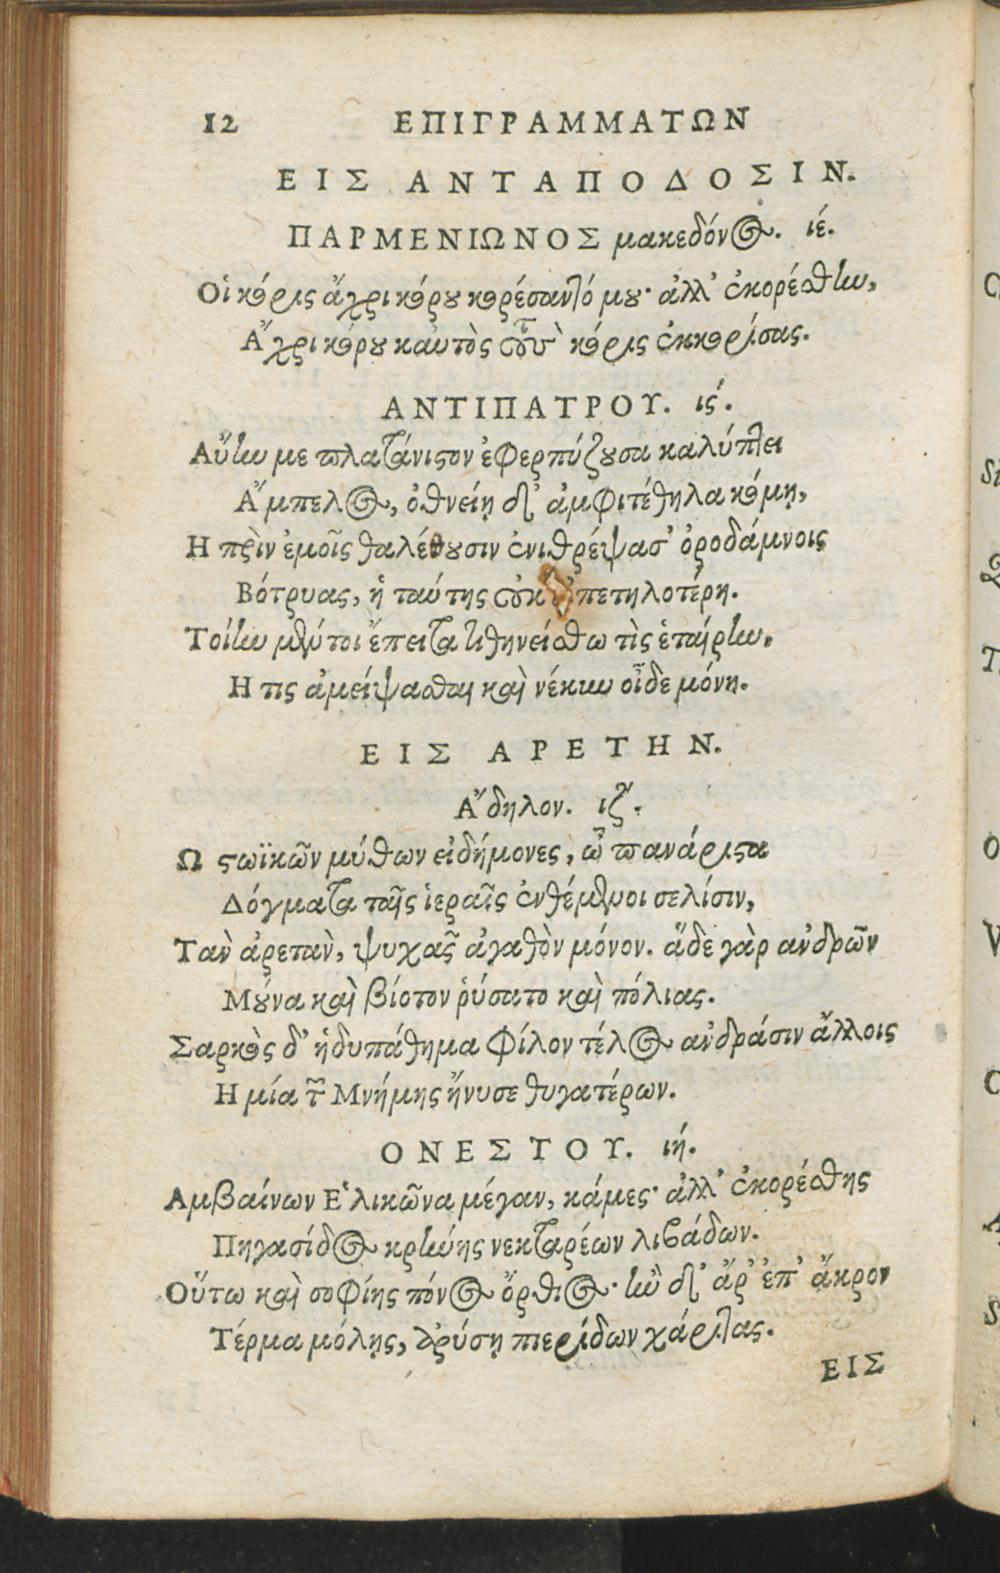 12 ΕΠΙΓΡΑΜΜΑΤΩΝ
ΕΙΣ ΑΝΤΑΠΟΔΟΣΙΝ.
ΠΑΡΜΕΝΙΩΝΟΣ μακεδόνος. ιέ.
Οἱ κόρις ἄχρι κόρου κορέσαντό μου· ἀλλ' ἐκορέσθην,
Ἄχρι κόρου καὐτὸς τοὺς κόρις ἐκκορίσας.
ΑΝΤΙΠΑΤΡΟΥ. ις΄.
Αὔην με πλατάνιστον ἐφερπύζουσα καλύπτει
Ἄμπελος, ὀθνείῃ δ' ἀμφιτέθηλα κόμῃ,
Η πρὶν ἐμοῖς θαλέθουσιν ἐνιθρέψασ' ὀροδάμνοις
Βότρυας, ἡ ταύτης οὐκ ἀπετηλοτέρη.
Τοίην μέντοι ἔπειτα τιθηνείσθω τὶς ἑταίρην,
Η τις ἀμείψασθαι καὶ νέκυν οἶδε μόνη.
ΕΙΣ ΑΡΕΤΗΝ.
Ἄδηλον. ιζ΄.
Ω στωϊκῶν μύθων εἰδήμονες, ὦ πανάριστα
Δόγματα ταῖς ἱεραῖς ἐνθέμενοι σελίσιν,
Τὰν ἀρετὰν, ψυχᾶς ἀγαθὸν μόνον. ἅδε γὰρ ἀνδρῶν
Μούνα καὶ βίοτον ῥύσατο καὶ πόλιας.
Σαρκὸς δ' ἡδυπάθημα φίλον τέλος ἀνδράσιν ἄλλοις
Η μία τῶν Μνήμης ἤνυσε θυγατέρων.
ΟΝΕΣΤΟΥ. ιή.
Αμβαίνων Ἑλικῶνα μέγαν, κάμες· ἀλλ' ἐκορέσθης
Πηγασίδος κρήνης νεκταρέων λιβάδων.
Οὕτω καὶ σοφίης πόνος ὄρθιος· ἢν δ' ἄρ' ἐπ' ἄκρον
Τέρμα μόλῃς, ἀρύσῃ πιερίδων χάριτας.
ΕΙΣ